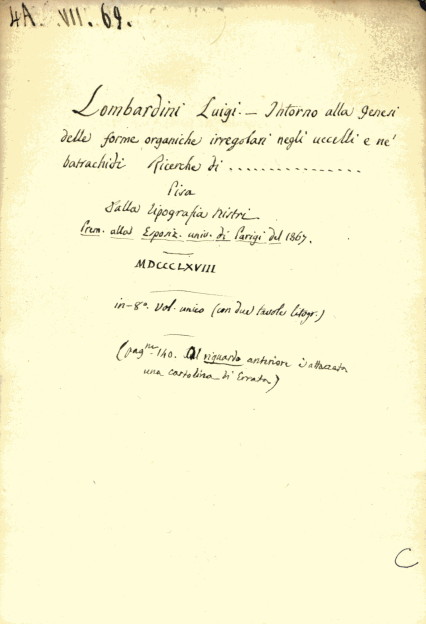 4A. VII. 69.
Lombardini Luigi. — Intorno alla genesi
delle forme organiche irregolari negli uccelli e ne'
batrachidi Ricerche di ................
Pisa
Dalla tipografia Nistri
Prem. alla Esposiz. univ. di Parigi del 1867.
MDCCCLXVIII
in-8º. vol. unico (con due tavole litogr.)
(pagne. 140. Al riguardo anteriore è attaccata
una cartolina di Errata)
C